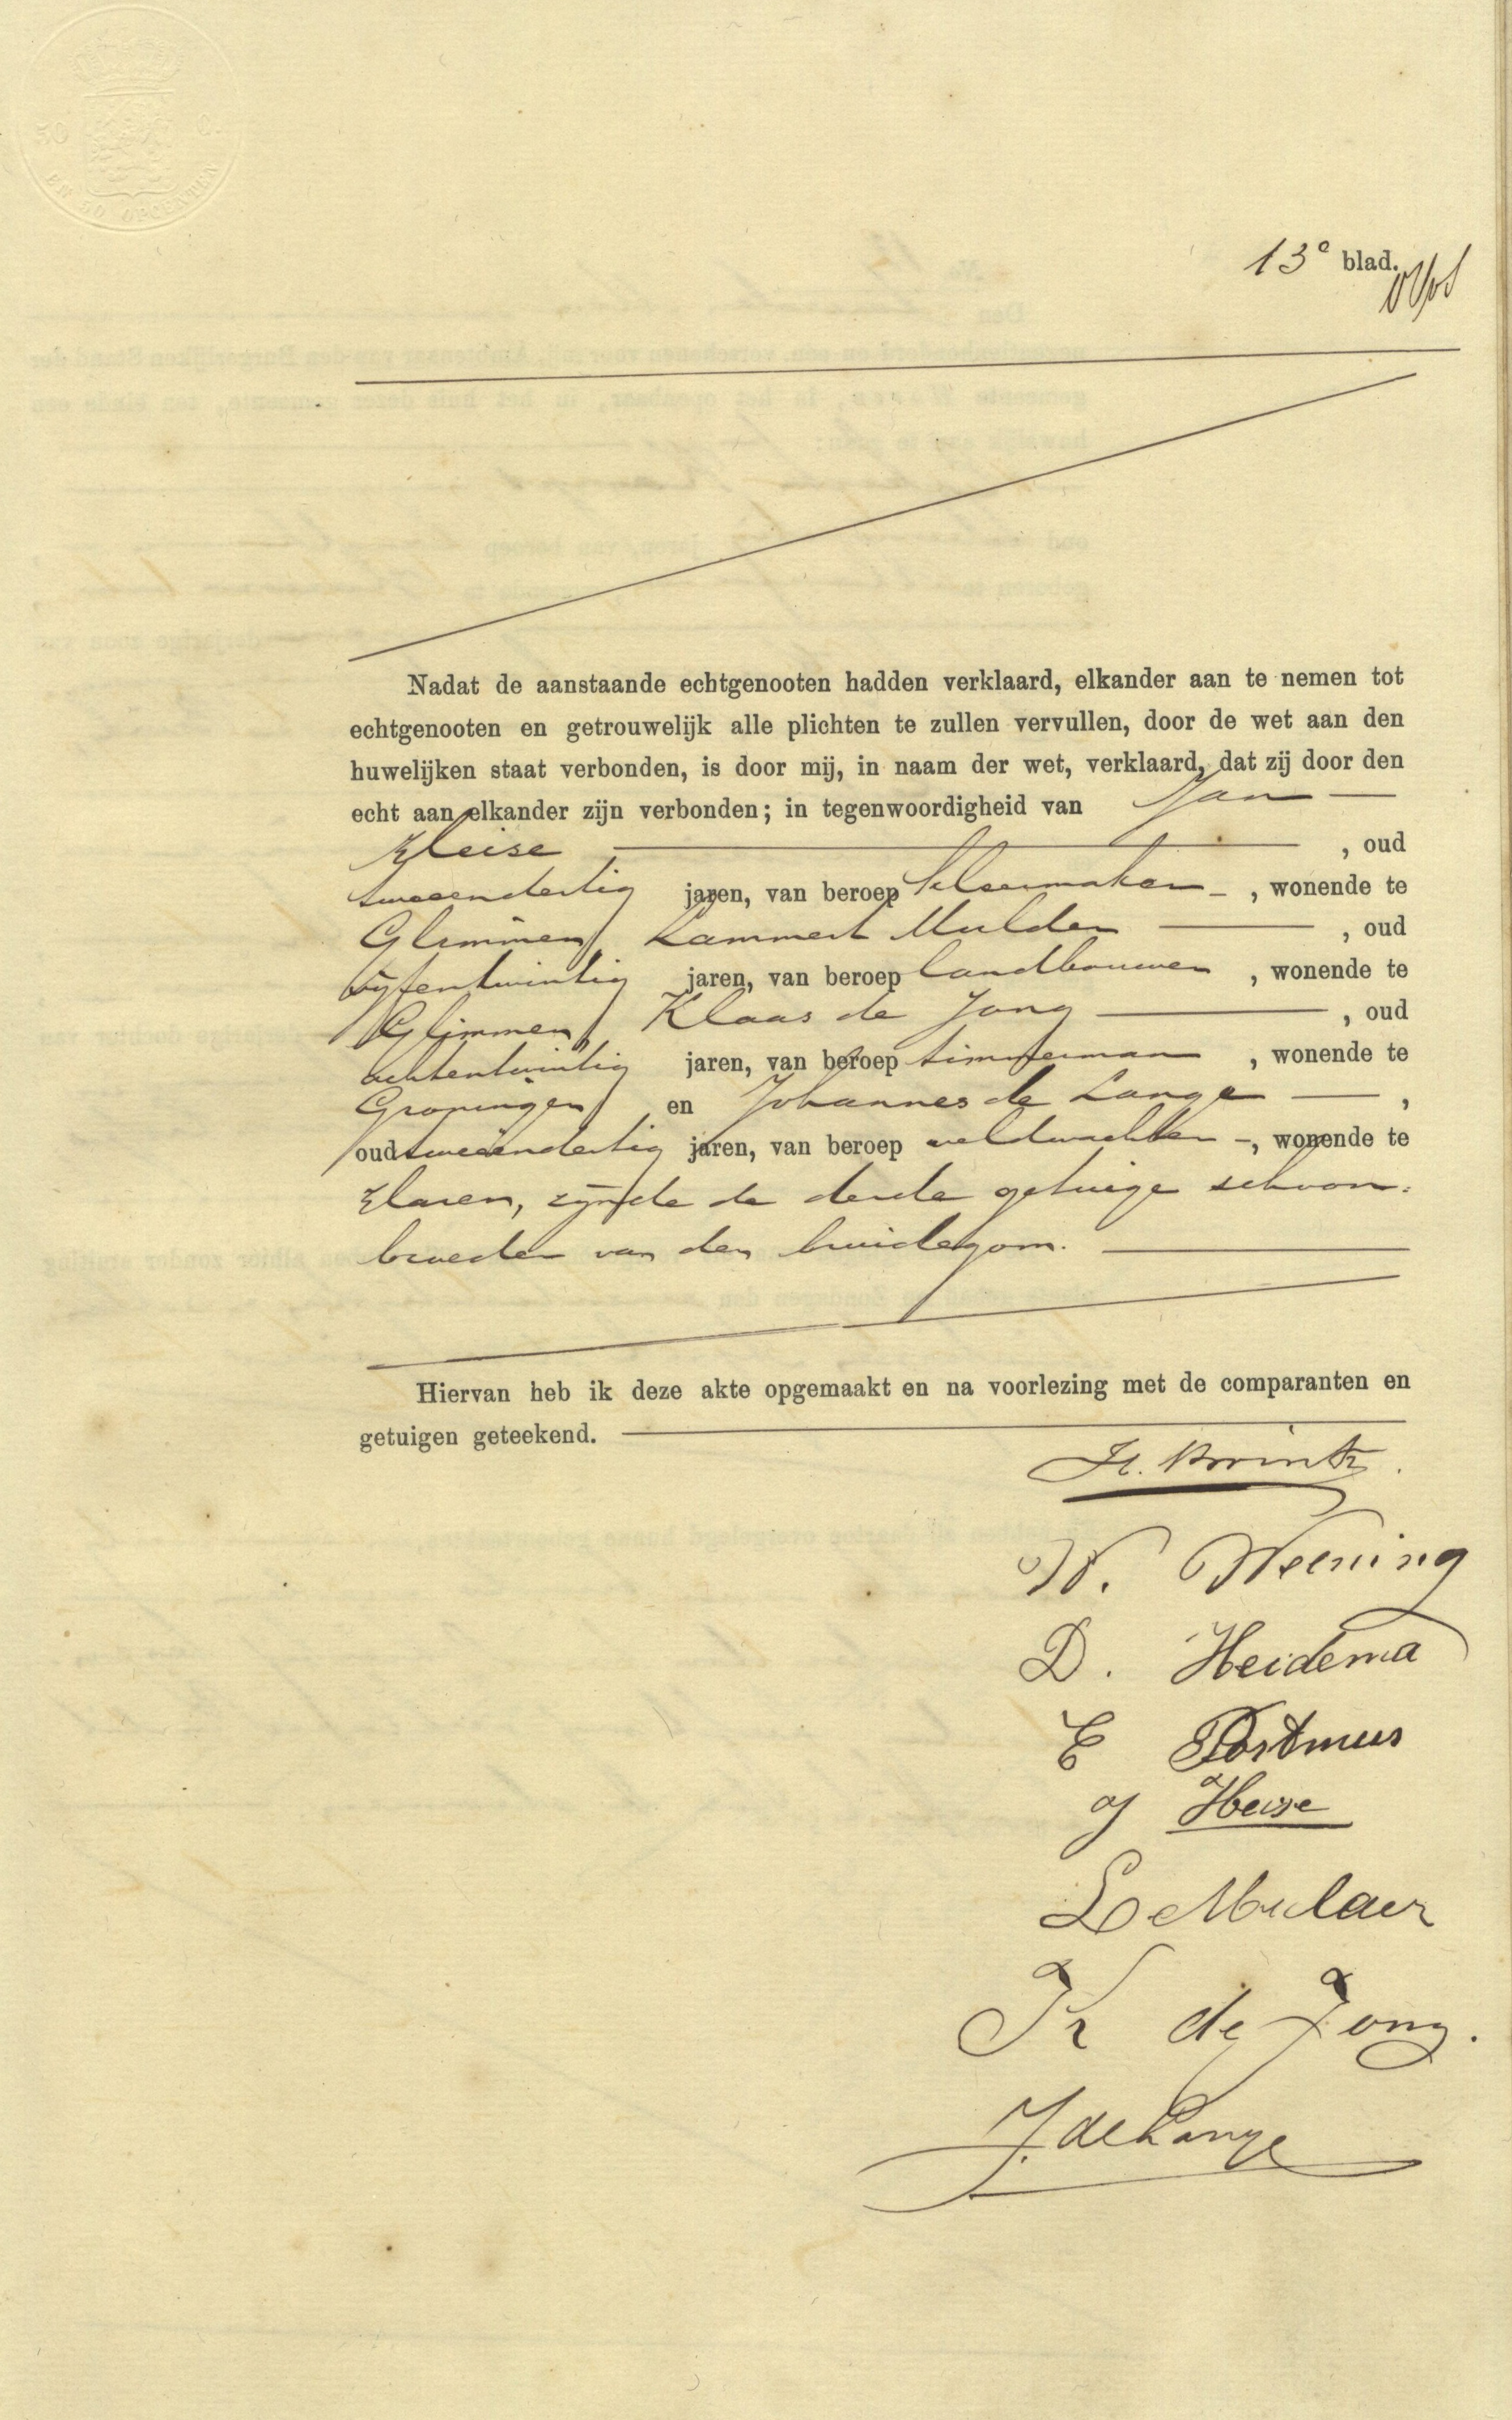 50 C.
EN 50 OPCENTEN
13e blad.
Nadat de aanstaande echtgenooten hadden verklaard, elkander aan te nemen tot
echtgenooten en getrouwelijk alle plichten te zullen vervullen, door de wet aan den
huwelijken staat verbonden, is door mij, in naam der wet, verklaard, dat zij door den
echt aan elkander zijn verbonden; in tegenwoordigheid van Jan
Heise , oud
tweeendertig jaren, van beroep kleermaker , wonende te
Glimmen, Lammert Mulder , oud
vyfentwintig jaren, van beroep landbouwer , wonende te
Glimmen, Klaas de Jong , oud
achtentwintig jaren, van beroep timmerman , wonende te
Groningen en Johannes de Lange ,
oud tweeëndertig jaren, van beroep veldwachter , wonende te
Haren, zynde de derde getuige schoon:
broeder van den bruidegom.
Hiervan heb ik deze akte opgemaakt en na voorlezing met de comparanten en
getuigen geteekend.
W. Weening
D. Heidema
E Postmus
J Heise
L Mulder
K de Jong.
J. de Lange